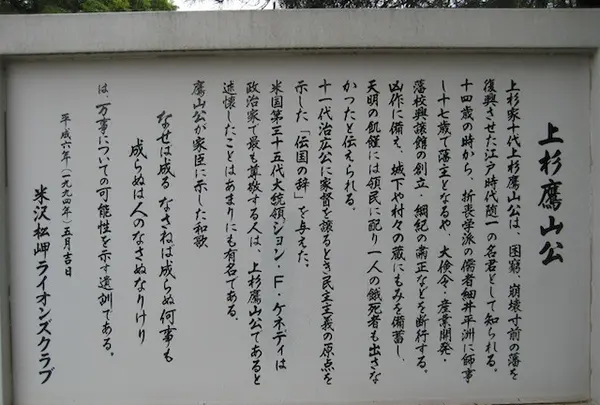 上杉鷹山公
上杉家十代上杉鷹山公は、困窮、崩壊寸前の藩を
復興させた江戸時代随一の名君として知られる。
十四歳の時から、折衷学派の儒者細井平洲に師事
し十七歳で藩主となるや、大倹令・産業開発・
藩校興譲館の創立・綱紀の粛正などを断行する。
凶作に備え、城下や村々の蔵にもみを備蓄し、
天明の飢饉には領民に配り一人の餓死者も出さな
かったと伝えられる。
十一代治広公に家督を譲るとき民主主義の原点を
示した「伝国の辞」を与えた。
米国第三十五代大統領ジョン・F・ケネディは
政治家で最も尊敬する人は、上杉鷹山公であると
述懐したことはあまりにも有名である。
鷹山公が家臣に示した和歌
なせは成る なさねは成らぬ何事も
成らぬは人のなさぬなりけり
は、万事についての可能性を示す遺訓である。
平成六年(一九九四年)五月吉日
米沢松岬ライオンズクラブ